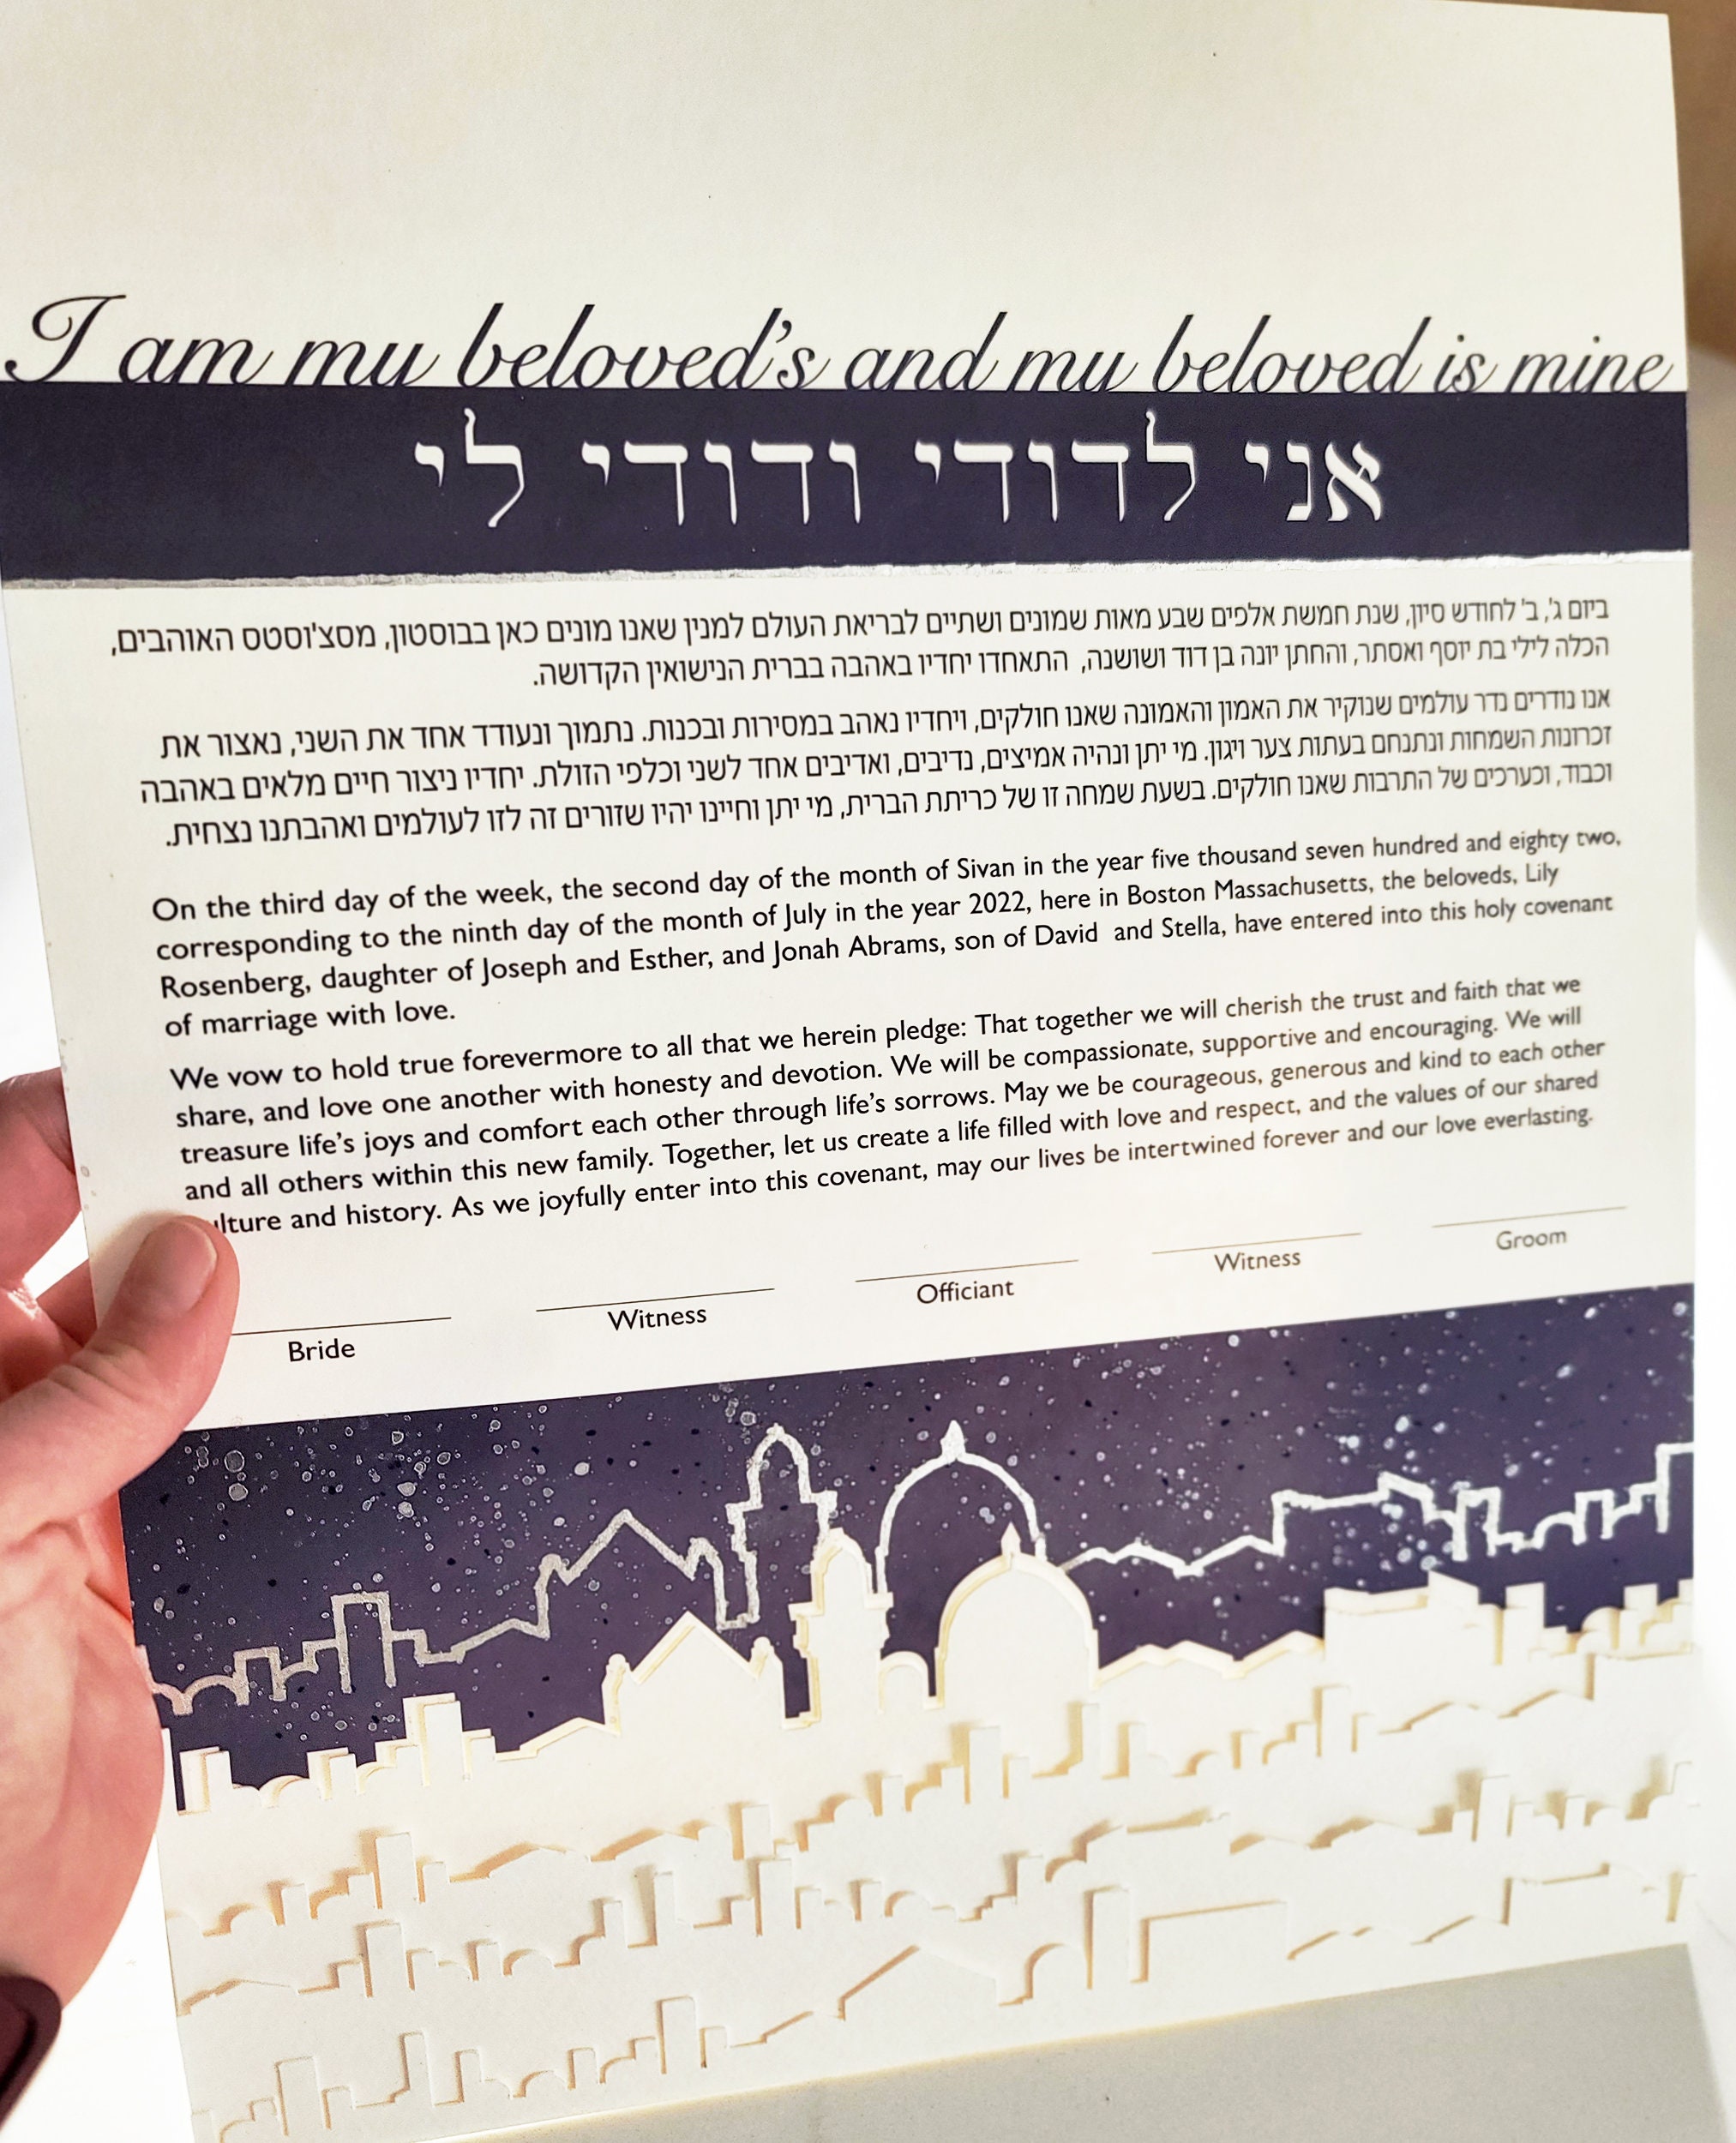 I am my beloved's and my beloved is mine
אני לדודי ודודי לי
ביום ג', ב' לחודש סיון, שנת חמשת אלפים שבע מאות שמונים ושתיים לבריאת העולם למנין שאנו מונים כאן בבוסטון, מסצ'וסטס האוהבים,
הכלה לילי בת יוסף ואסתר, והחתן יונה בן דוד ושושנה, התאחדו יחדיו באהבה בברית הנישואין הקדושה.
אנו נודרים נדר עולמים שנוקיר את האמון והאמונה שאנו חולקים, ויחדיו נאהב במסירות ובכנות. נתמוך ונעודד אחד את השני, נאצור את
זכרונות השמחות ונתנחם בעתות צער ויגון. מי יתן ונהיה אמיצים, נדיבים, ואדיבים אחד לשני וכלפי הזולת. יחדיו ניצור חיים מלאים באהבה
וכבוד, וכערכים של התרבות שאנו חולקים. בשעת שמחה זו של כריתת הברית, מי יתן וחיינו יהיו שזורים זה לזו לעולמים ואהבתנו נצחית.
On the third day of the week, the second day of the month of Sivan in the year five thousand seven hundred and eighty two,
corresponding to the ninth day of the month of July in the year 2022, here in Boston Massachusetts, the beloveds, Lily
Rosenberg, daughter of Joseph and Esther, and Jonah Abrams, son of David and Stella, have entered into this holy covenant
of marriage with love.
We vow to hold true forevermore to all that we herein pledge: That together we will cherish the trust and faith that we
share, and love one another with honesty and devotion. We will be compassionate, supportive and encouraging. We will
treasure life's joys and comfort each other through life's sorrows. May we be courageous, generous and kind to each other
and all others within this new family. Together, let us create a life filled with love and respect, and the values of our shared
ulture and history. As we joyfully enter into this covenant, may our lives be intertwined forever and our love everlasting.
Bride
Witness
Officiant
Witness
Groom